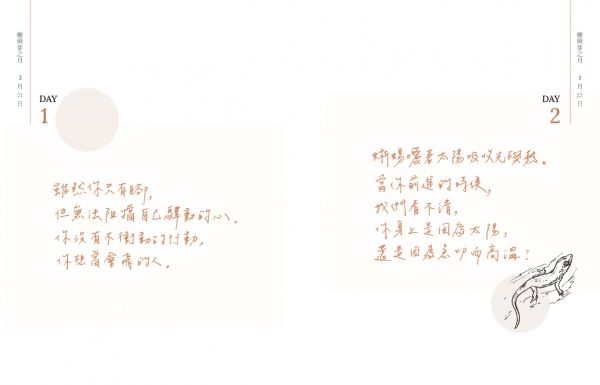 樹萌芽之月 3月21日
DAY
1
雖然你只有腳，
但無法阻擋自己躁動的心。
你沒有不衝動的行動，
你想當會飛的人。
樹萌芽之月 3月22日
DAY
2
蜥蜴曬著太陽吸收光與熱。
當你前進的時候，
我們看不清，
你身上是因為太陽，
還是因為急切而高溫？